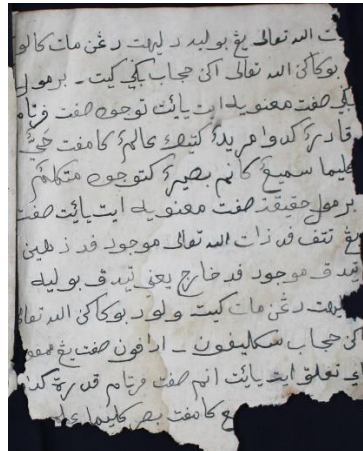 ت الله تعالى يڠ بوليه دليهت دڠن مات كالو
بوكاكن الله تعالى اكن حجاب بݢي كيت ـ برمول
بݢي صفت معنويه ايت يائيت توجوه صفت فرتام
قادرا كدوا مريدا كتيݢ عالما كامفت حيا
كليما سميعا كانم بصيرا كتوجوه متكلما
برمول حقيقة صفت معنويه ايت يائيت صفت
يڠ تتف فد ذات الله تعالى موجود فد ذهين
تيدق موجود فد خارج يعني تيدق بوليه
ليهت دڠن مات كيت ولو دبوكاكن الله تعالى
اكن حجاب سكليفون ـ ادافون صفت يڠ
تعلق ايت يائيت انم صفت فرتام قدرة كدوا
كامفت بصر كليما